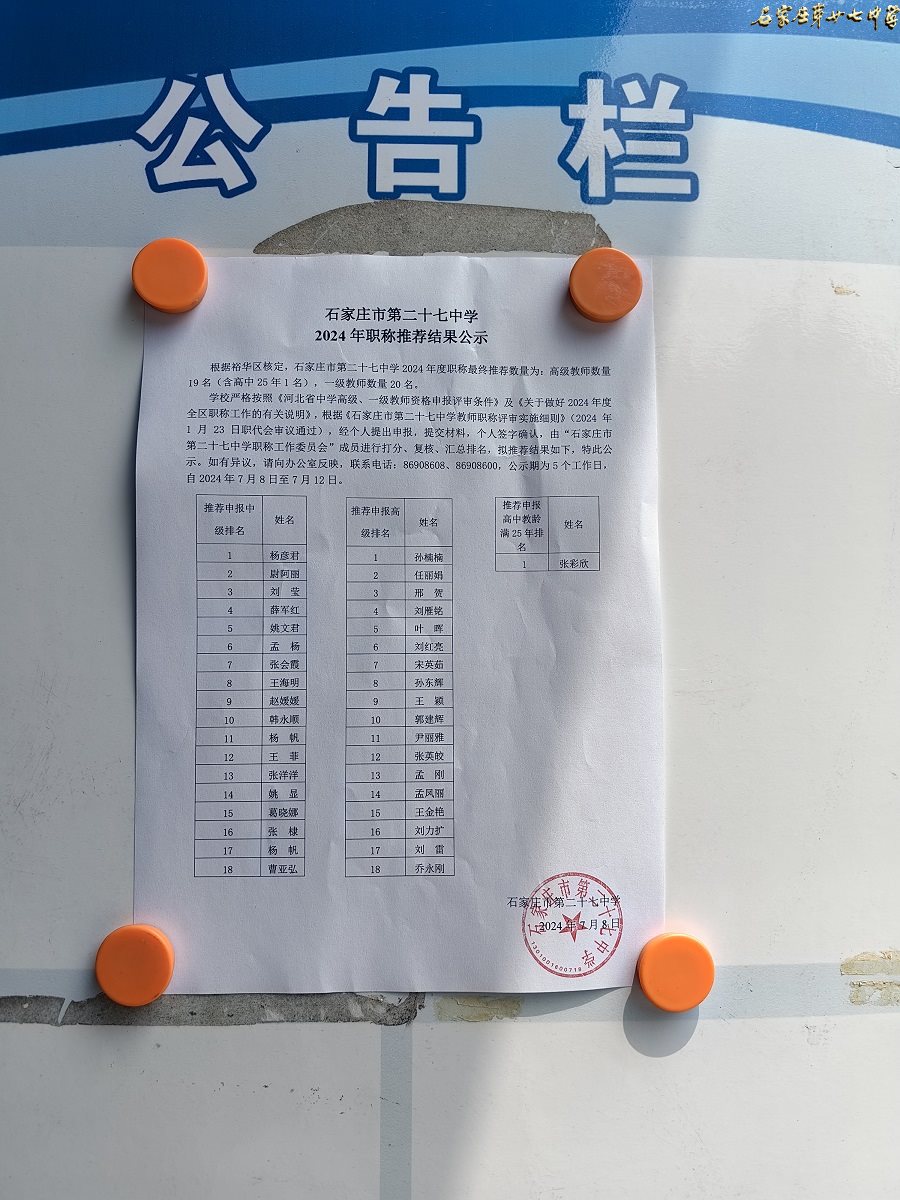 石家庄第廿七中学
公告栏
石家庄市第二十七中学
2024 年职称推荐结果公示
根据裕华区核定，石家庄市第二十七中学 2024 年度职称最终推荐数量为：高级教师数量
19 名（含高中 25 年 1 名），一级教师数量 20 名。
学校严格按照《河北省中学高级、一级教师资格申报评审条件》及《关于做好 2024 年度
全区职称工作的有关说明》，根据《石家庄市第二十七中学教师职称评审实施细则》（2024 年
1 月 23 日职代会审议通过），经个人提出申报，提交材料，个人签字确认，由“石家庄市
第二十七中学职称工作委员会”成员进行打分、复核、汇总排名，拟推荐结果如下，特此公
示。如有异议，请向办公室反映，联系电话：86908608、86908600，公示期为 5 个工作日，
自 2024 年 7 月 8 日至 7 月 12 日。
推荐申报中级排名 姓名
1 杨彦君
2 尉阿丽
3 刘 莹
4 薛军红
5 姚文君
6 孟 杨
7 张会霞
8 王海明
9 赵媛媛
10 韩永顺
11 杨 帆
12 王 菲
13 张洋洋
14 姚 显
15 葛晓娜
16 张 棣
17 杨 帆
18 曹亚弘
推荐申报高级排名 姓名
1 孙楠楠
2 任丽娟
3 邢 贺
4 刘雁铭
5 叶 晖
6 刘红亮
7 宋英茹
8 孙东辉
9 王 颖
10 郭建辉
11 尹丽雅
12 张英皎
13 孟 刚
14 孟凤丽
15 王金艳
16 刘力扩
17 刘 雷
18 乔永刚
推荐申报高中教龄满 25 年排名 姓名
1 张彩欣
石家庄市第二十七中学
2024 年 7 月 8 日
石家庄市第二十七中学
1301001600719